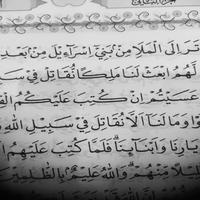 تَرَ إِلَى ٱلْمَلَإِ مِنۢ بَنِىٓ إِسْرَٰٓءِيلَ مِنۢ بَعْدِ
لَهُمُ ٱبْعَثْ لَنَا مَلِكًا نُّقَٰتِلْ فِى سَ
عَسَيْتُمْ إِن كُتِبَ عَلَيْكُمُ ٱلْقِ
وا۟ وَمَا لَنَآ أَلَّا نُقَٰتِلَ فِى سَبِيلِ ٱللَّهِ
يَٰرِنَا وَأَبْنَآئِنَا ۖ فَلَمَّا كُتِبَ عَلَيْهِمُ
لِيلًا مِّنْهُمْ ۗ وَٱللَّهُ عَلِيمٌۢ بِٱلظَّٰلِمِينَ